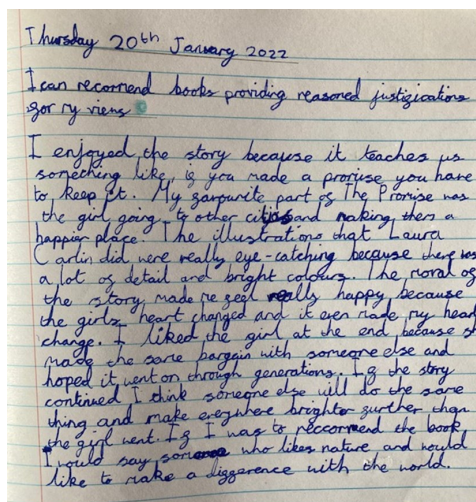 Thursday 20th January 2022
I can recomend books providing reasoned justifications
for my views
I enjoyed the story because it teaches us
something like, if you made a promise you have
to keep it. My favourite part of The Promise was
the girl going to other cities and making them a
happier place. The illustrations that Laura
Carlin did were really eye-catching because there was
a lot of detail and bright colours. The moral of
the story, made me feel really happy because
the girls heart changed and it even made my head
change. I liked the girl at the end because s
made the same bargain with someone else and
hoped it went on through generations. If the story
continued I think someone else will do the same
thing and make everywhere brighter further than
the girl went. If I was to reccomend the book
I would say someone who likes nature and would
like to make a difference with the world.